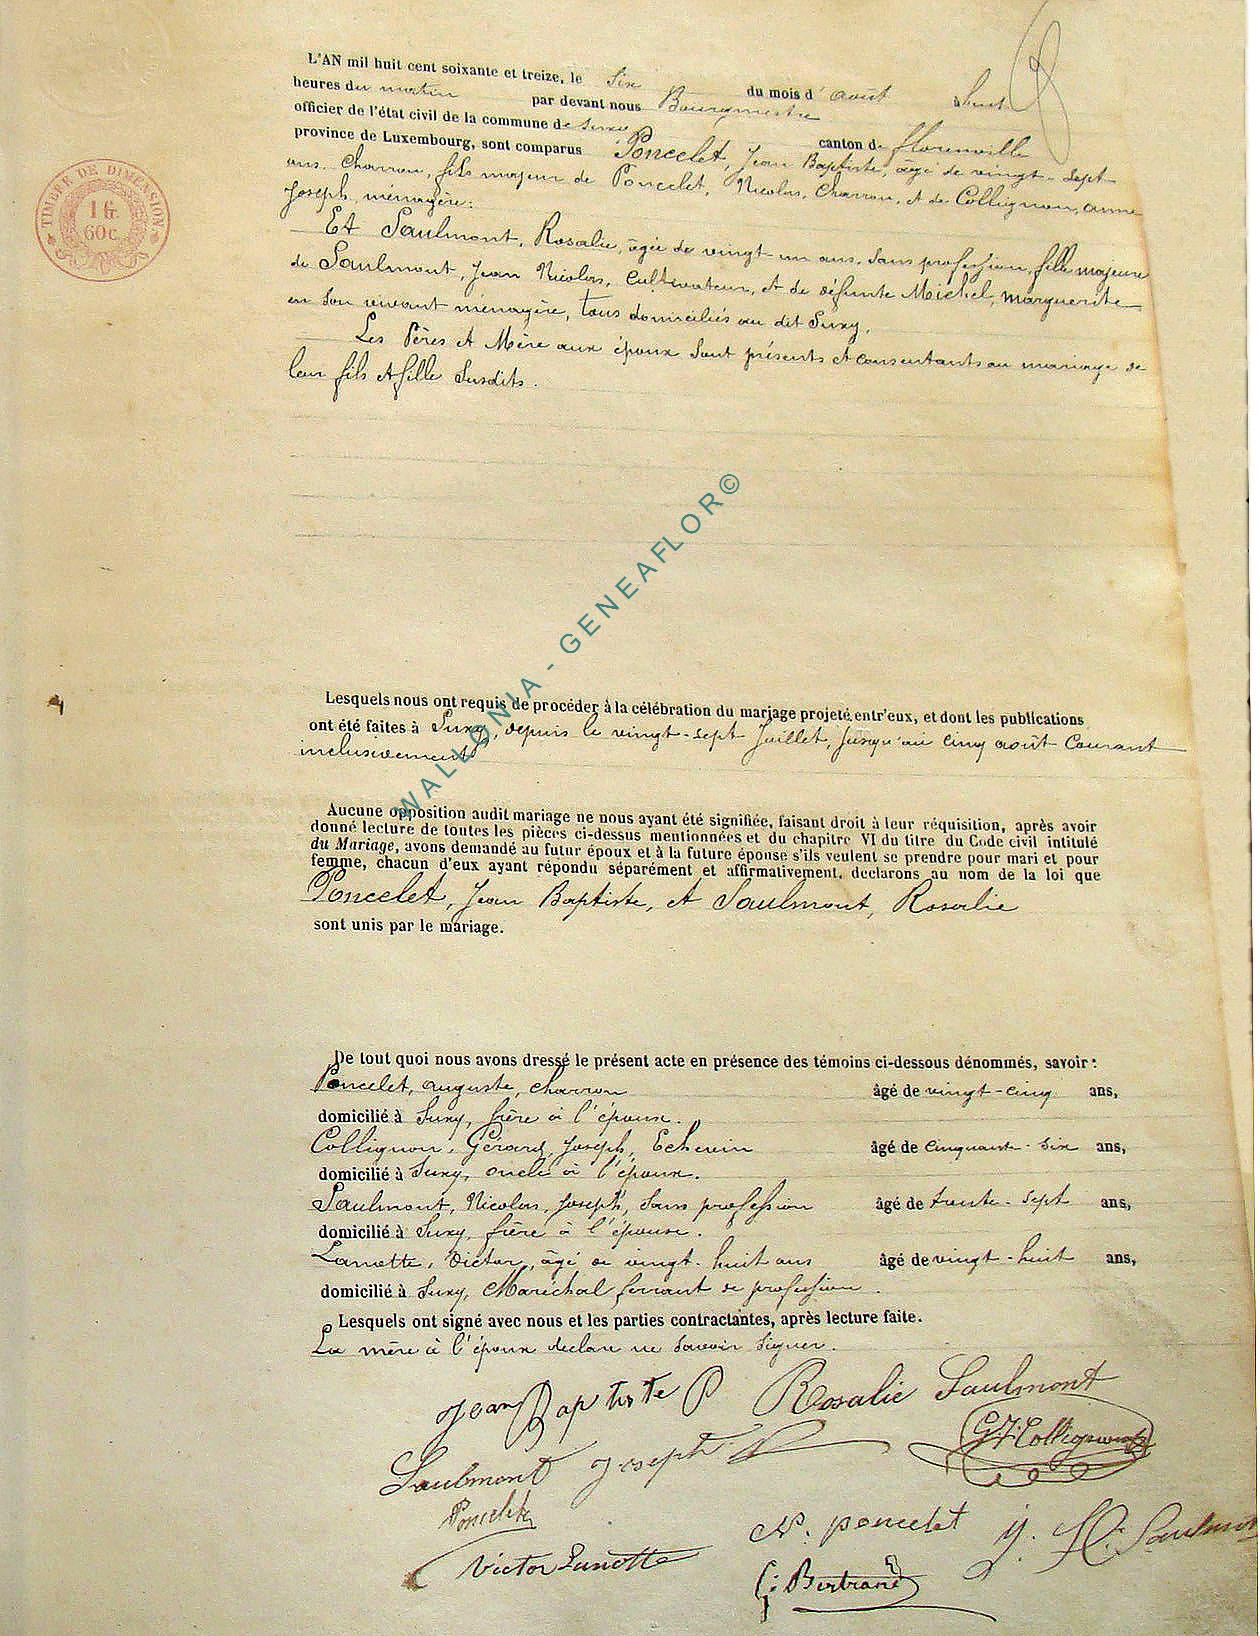 L'AN mil huit cent soixante et treize, le six du mois d'août à huit
heures du matin par devant nous Bourgmestre
officier de l'état civil de la commune de Suxy canton de florenville
province de Luxembourg, sont comparus Poncelet, Jean Baptiste, âgé de vingt-sept
ans, Charron, fils majeur de Poncelet, Nicolas, Charron, et de Collignon, anne
Joseph, ménagère:
Et Saulmont, Rosalie, âgée de vingt un ans, sans profession, fille majeure
de Saulmont, Jean Nicolas, Cultivateur, et de défunte Michel, marguerite
en son vivant ménagère, tous domiciliés au dit Suxy.
Les Pères et Mère aux époux sont présents et consentants au mariage de
leur fils et fille susdits.
TIMBRE DE DIMENSION
1 fr.
60c.
WALLONIA - GENEAFLOR©
Lesquels nous ont requis de procéder à la célébration du mariage projeté entr'eux, et dont les publications
ont été faites à Suxy, depuis le vingt-sept Juillet, jusqu'au cinq août Courant
inclusivement
Aucune opposition audit mariage ne nous ayant été signifiée, faisant droit à leur réquisition, après avoir
donné lecture de toutes les pièces ci-dessus mentionnées et du chapitre VI du titre du Code civil intitulé
du Mariage, avons demandé au futur époux et à la future épouse s'ils veulent se prendre pour mari et pour
femme, chacun d'eux ayant répondu séparément et affirmativement, declarons au nom de la loi que
Poncelet, Jean Baptiste, et Saulmont, Rosalie
sont unis par le mariage.
De tout quoi nous avons dressé le présent acte en présence des témoins ci-dessous dénommés, savoir:
Poncelet, auguste, charron âgé de vingt-cinq ans,
domicilié à Suxy, frère à l'époux.
Collignon, Gérard, Joseph, Echevin âgé de cinquante-six ans,
domicilié à Suxy, oncle à l'époux.
Saulmont, Nicolas, Joseph, sans profession âgé de trente-sept ans,
domicilié à Suxy, frère à l'épouse.
Lanotte, Victor, âgé de vingt-huit ans âgé de vingt-huit ans,
domicilié à Suxy, Maréchal ferrant de profession.
Lesquels ont signé avec nous et les parties contractantes, après lecture faite.
La mère à l'époux declare ne savoir signer.
Jean Baptiste P Rosalie Saulmont
Saulmont Joseph G J Collignon
Poncelet
N. poncelet J. N. Saulmon
Victor Lanotte
G. Bertrand